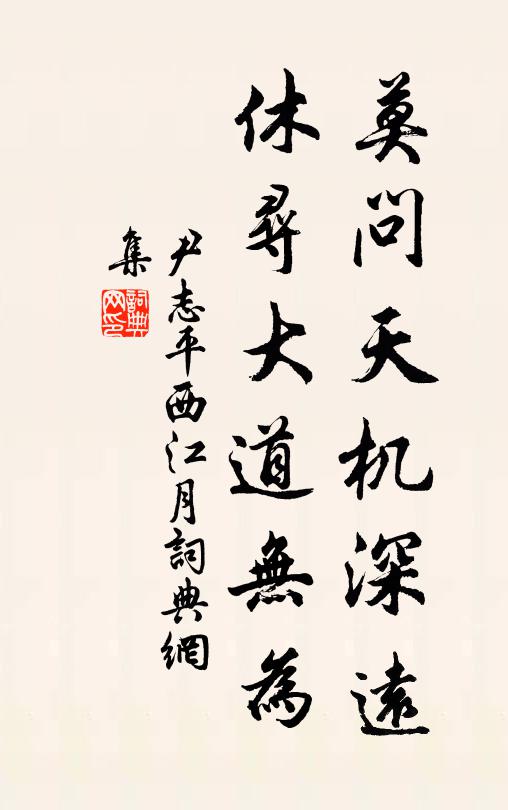 莫问天机深遠
休尋大道無為
尹志平西江月詞典網
集
詞典網印